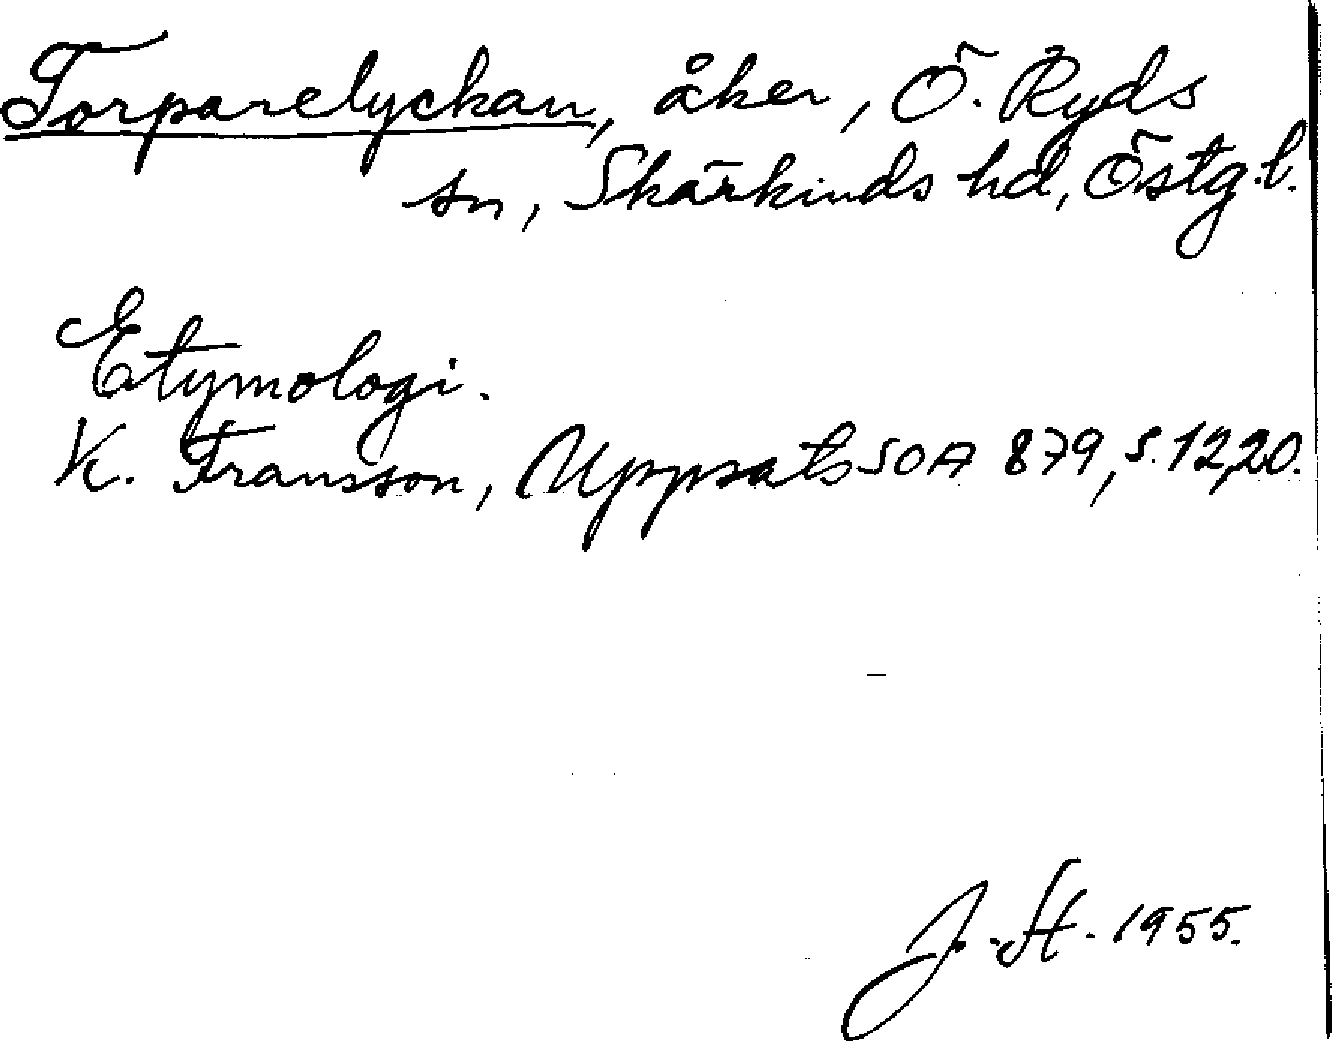 Torparelyckan, åker, Ö. Ryds
sn, Skärkinds hd, Östg.l.
Etymologi.
K. Fransson, Uppsats SOA 879, s. 12,20.
J. St. 1955.